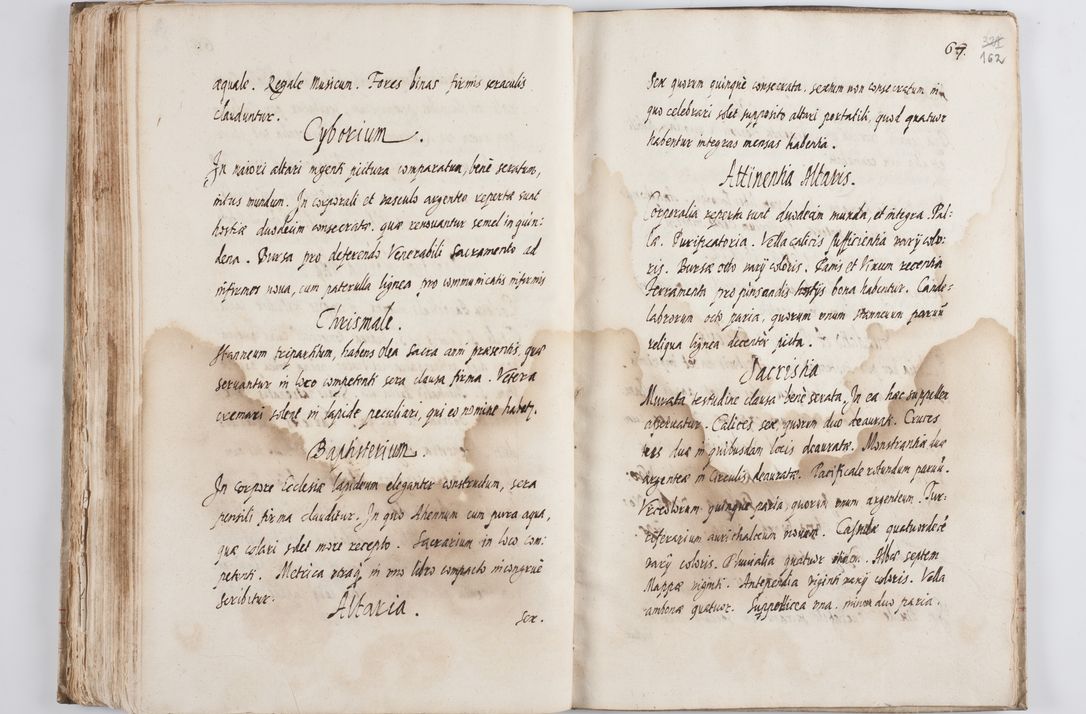 æquale. Regale Musicum. Fores binas firmis seraculis
clauduntur.
Cyborium.
In maiori altari ingenti pictura comparatum, benè seratum,
intus mundum. In corporali et vasculo argenteo repertæ sunt
hostiæ duodecim consecratæ. quæ renovantur semel in quin:
dena. Bursa pro deferendo Venerabili Sacramento ad
infirmos nova, cum paterulla lignea pro communicatis infirmis
Chrismale.
Stanneum tripartitum, habens Olea Sacra anni præsentis, quæ
servantur in loco competenti sera clausa firma. Vetera
cremari solent in lapide peculiari, qui eo nomine habetr.
Baptisterium.
In corpore Ecclesiæ lapideum eleganter constructum, sera
pensili firma clauditur. In quo Ahenum cum pura aqua,
quæ colari solet more recepto. Sacrarium in loco com:
petenti. Metrica utraq in uno libro compacto incongruè
scribitur.
Altaria.
Sex.
67. 321
162
Sex quorum quinque consecrata, sextum non consecratum in
quo celebrari solet supposito altari portatili, quod quatuor
habentur integras mensas habentia.
Attinentia Altaris.
Corporalia reperta sunt duodecim munda, et integra. Pal:
læ. Purificatoria. Vella calicis sufficientia varij colo:
ris. Bursæ octo varij coloris. Panis et Vinum recentia
Ferramenta pro pinsandis hostijs bona habentur. Cande:
labrorum octo paria, quorum unum stanneum parum
reliqua lignea decenter picta.
Sacristia
Murata testudine clausa benè serata, In ea hæc suppellex
asservatur. Calices sex, quorum duo deaurati. Cruces
duæ in quibusdam locis deauratæ. Monstrantiæ duæ
argenteæ in Circulis deauratæ. Pacificale rotundum parum.
Vrceolorum quinque paria, quorum unum argenteum. Tur:
referarium aurichalceum novum. Casulæ quatuordecem
varij coloris. Pluvialia quatuor itidem. Albæ septem
Mappæ viginti. Antependia viginti varij coloris. Vella
ambonæ quatuor. Suppellicea una. minora duo paria.